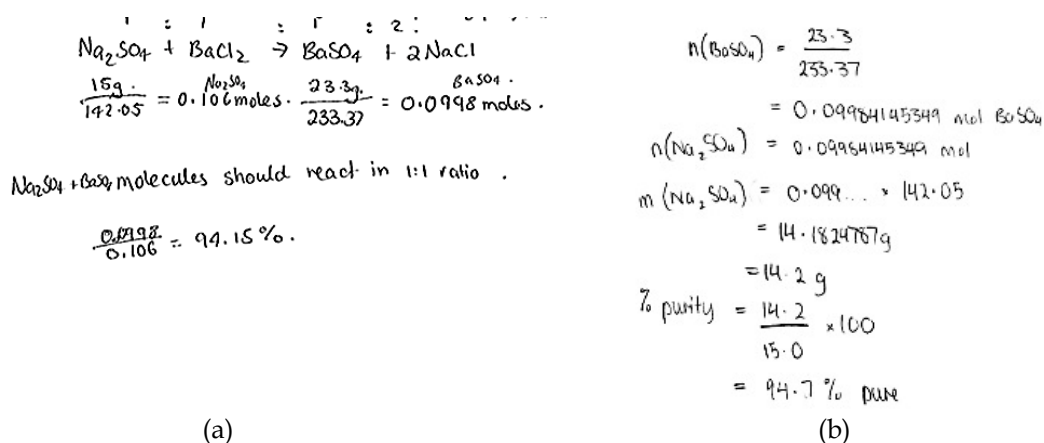 1 : 1 : 1 : 2 :
Na₂SO₄ + BaCl₂ → BaSO₄ + 2NaCl
15g. / 142.05 = 0.106 moles. Na₂SO₄ 23.3g. / 233.37 = 0.0998 moles. BaSO₄.
Na₂SO₄ + BaSO₄ molecules should react in 1:1 ratio.
0.0998 / 0.106 = 94.15%.
(a)
n(BaSO₄) = 23.3 / 233.37
= 0.09984145349 mol BaSO₄
n(Na₂SO₄) = 0.09984145349 mol
m(Na₂SO₄) = 0.099... × 142.05
= 14.1824787g
= 14.2 g
% purity = 14.2 / 15.0 × 100
= 94.7 % pure
(b)